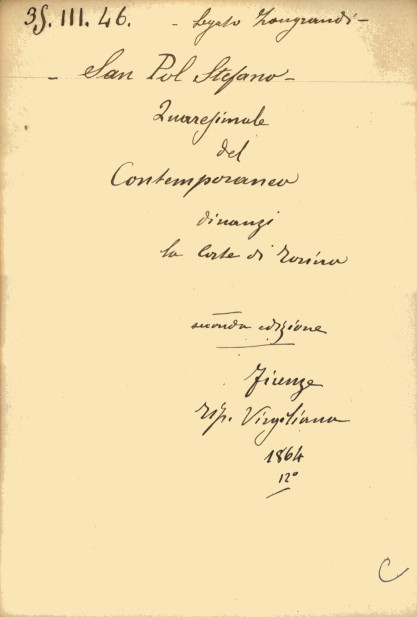 35. III. 46. - Legato Zangrandi -
- San Pol Stefano -
Quaresimale
del
Contemporaneo
dinanzi
la Corte di Torino
seconda edizione
Firenze
Tip. Virgiliana
1864
12°
C